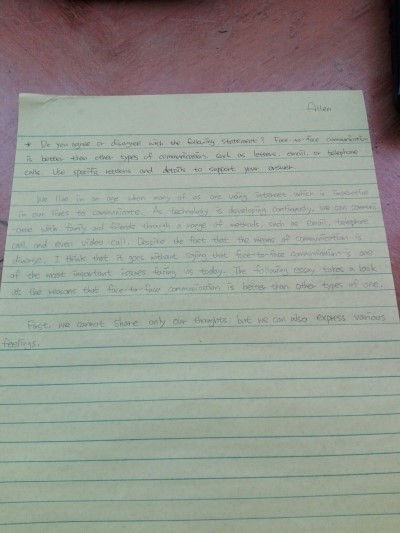 * Do you agree or disagree with the following statement? Face-to-face communication
is better than other types of communication, such as letters, email, or telephone
calls. Use specific reasons and details to support your answer.
We live in an age when many of us are using internet which is imperative
in our lives to communicate. As technology is developing continuously, we can
cate with family and friends through a range of methods, such as email, telephone
call and even video call. Despite the fact that the means of communication is
diverse, I think that it goes without saying that face-to-face communication is one
of the most important issues facing us today. The following essay takes a look
at the reasons that face-to-face communication is better than other types of one.
First, we cannot share only our thoughts, but we can also express various
feelings.